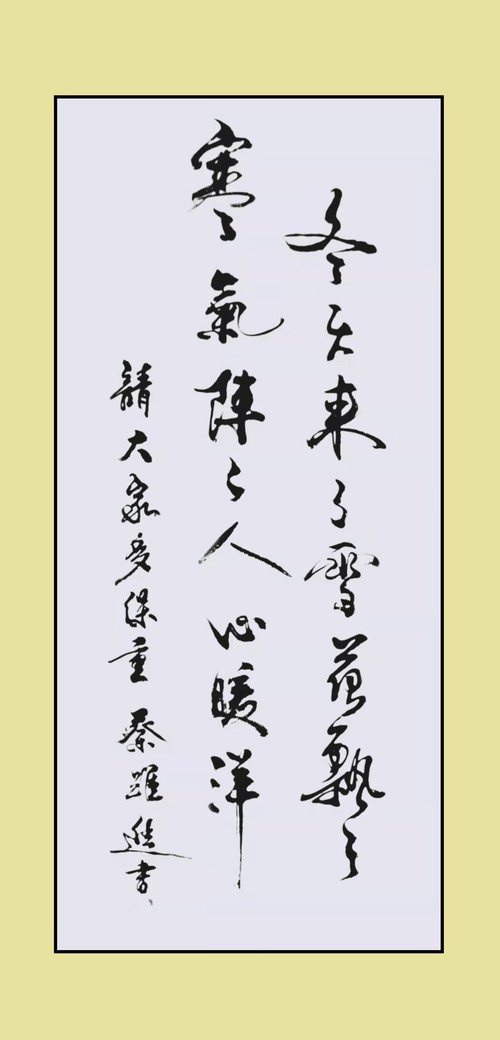 冬天来了雪花飘々
寒氣陣々人心暖洋
請大家多保重 蔡躍進書